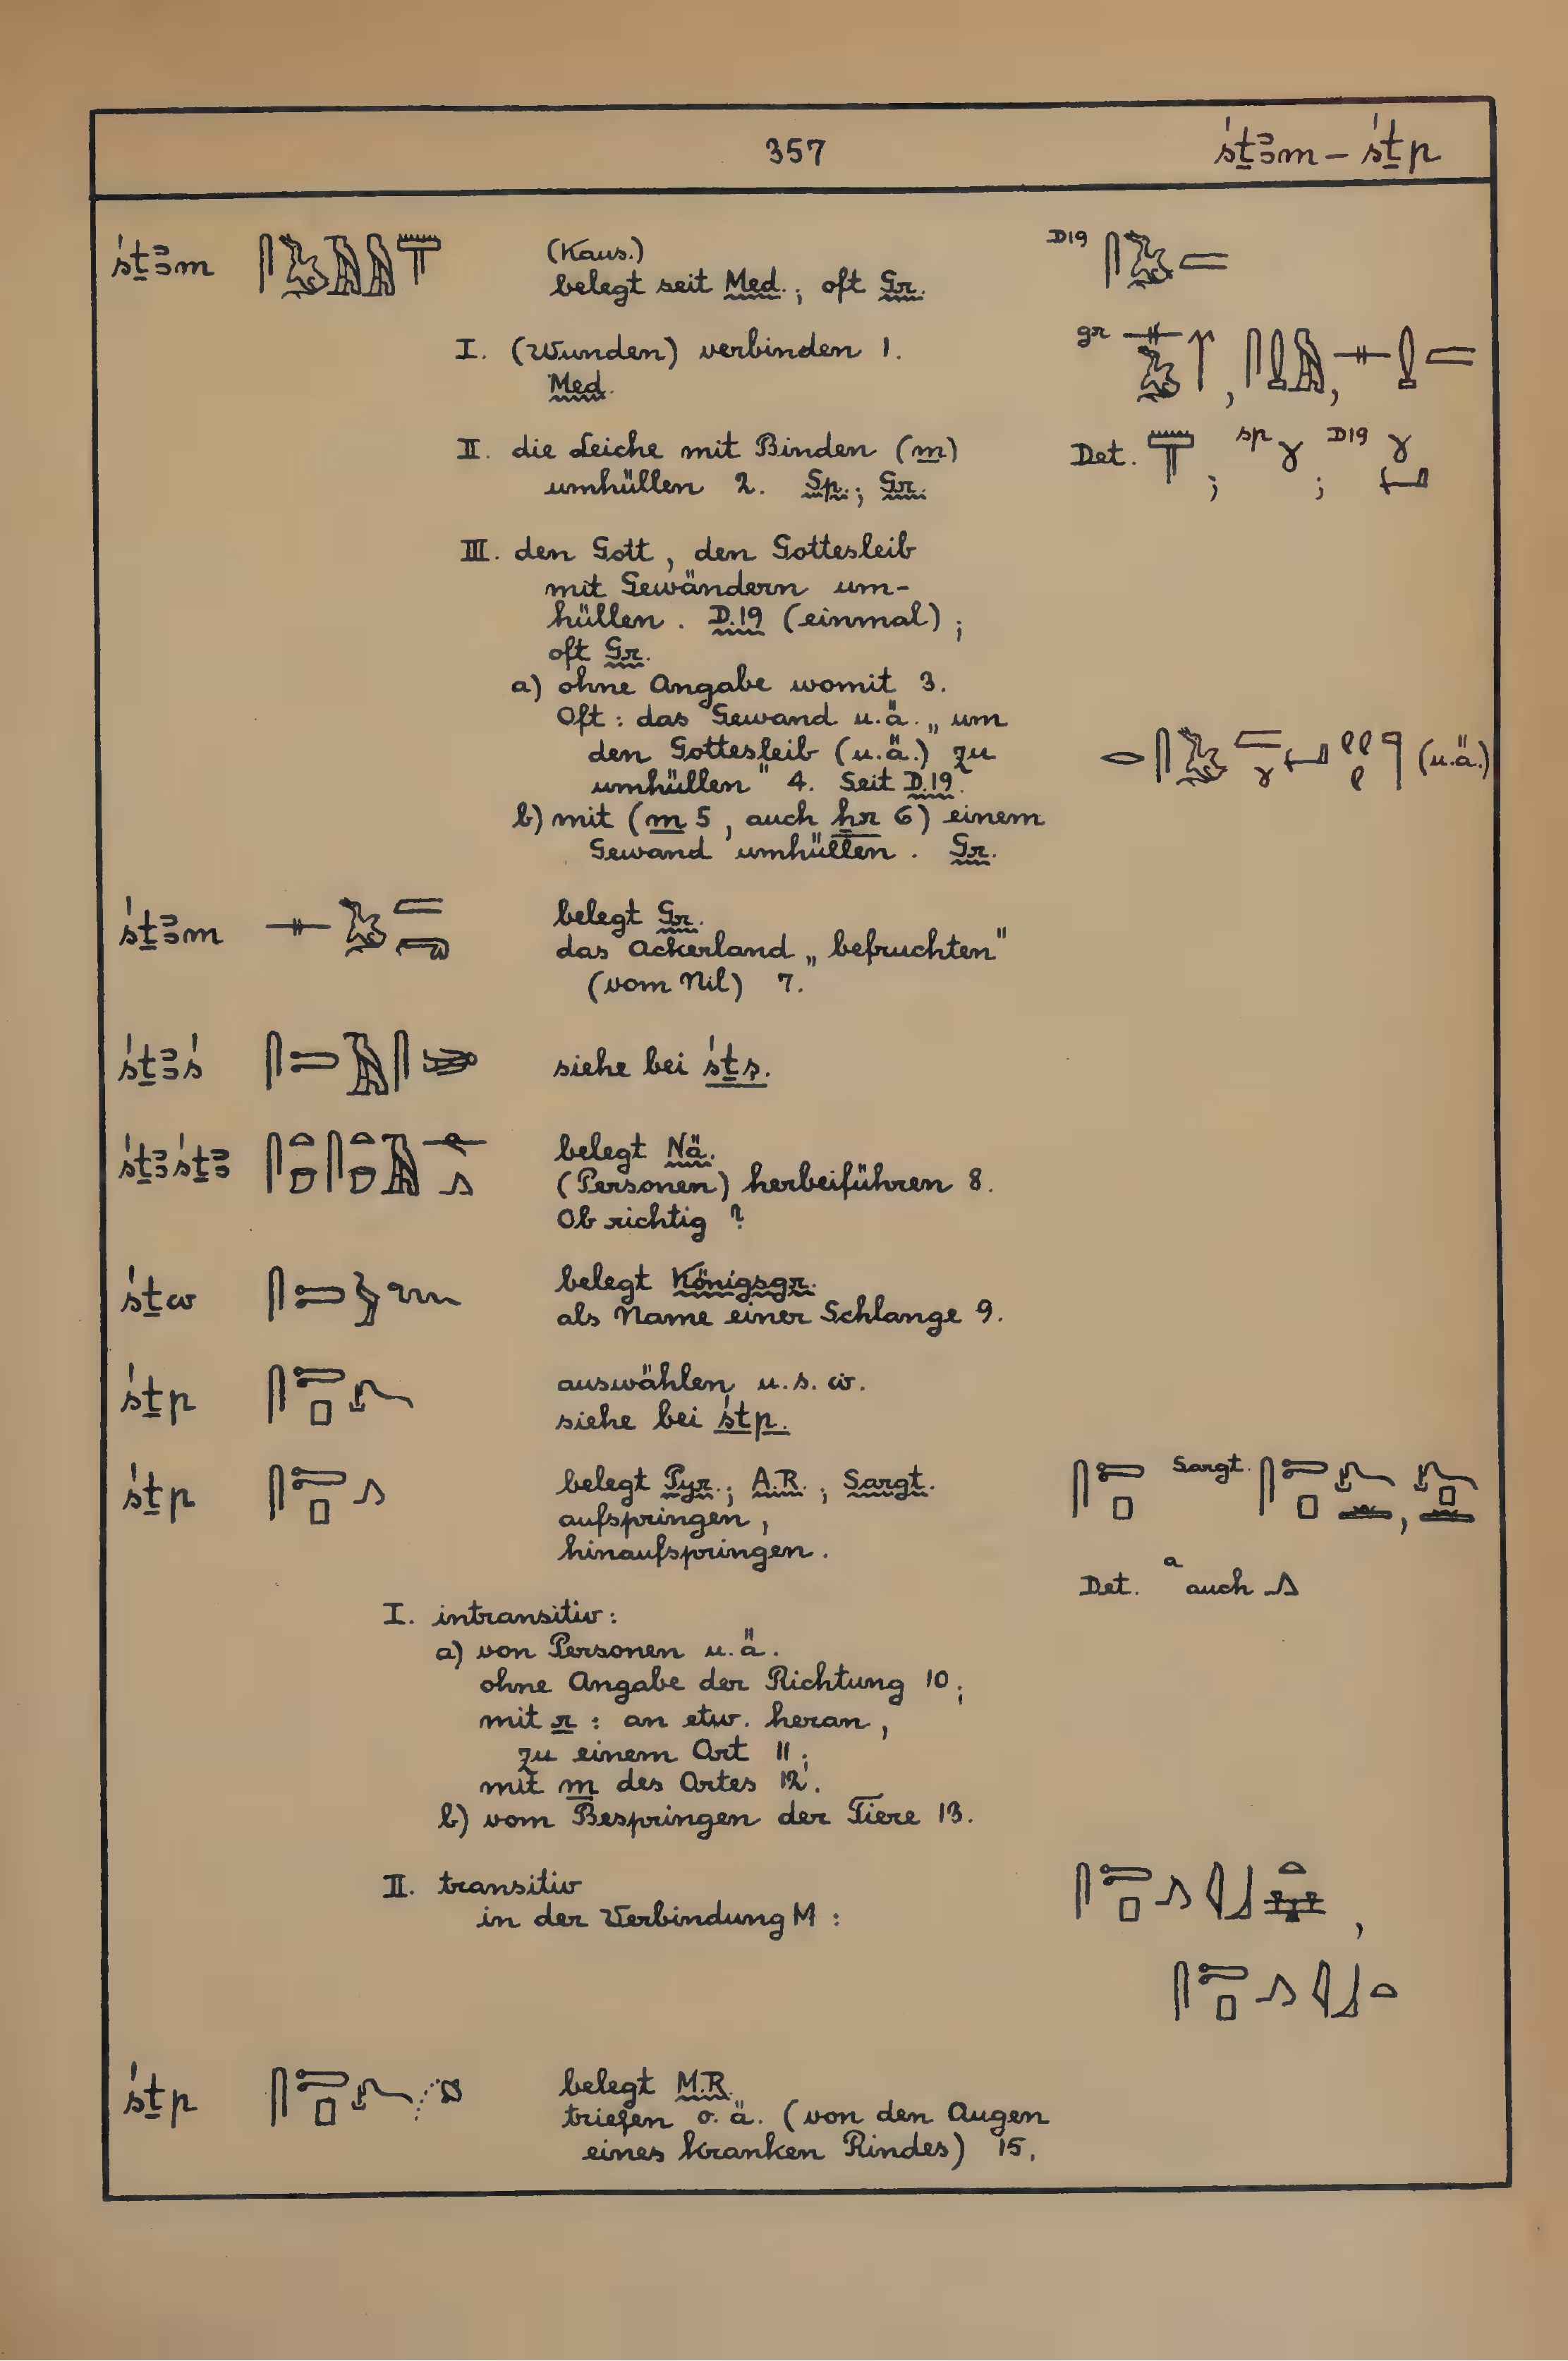 357 śṯꜣm – śṯp
śṯꜣm (Kaus.) D19
belegt seit Med.; oft Gr.
I. (Wunden) verbinden 1. gr
Med.
II. die Leiche mit Binden (m) Det. ; sp ; D19
umhüllen 2. Sp.; Gr.
III. den Gott, den Gottesleib
mit Gewändern um-
hüllen. D.19 (einmal);
oft Gr.
a) ohne Angabe womit 3.
Oft: das Gewand u.ä. „um
den Gottesleib (u.ä.) zu (u.ä.)
umhüllen" 4. Seit D.19.
b) mit (m 5, auch ḥr 6) einem
Gewand umhüllen. Gr.
śṯꜣm belegt Gr.
das Ackerland „befruchten"
(vom Nil) 7.
śṯꜣś siehe bei śṯś.
śṯꜣśṯꜣ belegt Nä.
(Personen) herbeiführen 8.
Ob richtig?
śṯw belegt Königsgr.
als Name einer Schlange 9.
śṯp auswählen u.s.w.
siehe bei śtp.
śṯp belegt Pyr.; A.R.; Sargt. Sargt. ,
aufspringen,
hinaufspringen.
Det. a auch
I. intransitiv:
a) von Personen u.ä.
ohne Angabe der Richtung 10;
mit r: an etw. heran,
zu einem Ort 11;
mit m des Ortes 12.
b) vom Bespringen der Tiere 13.
II. transitiv
in der Verbindung M: ,
śṯp belegt M.R.
triefen o.ä. (von den Augen
eines kranken Rindes) 15.